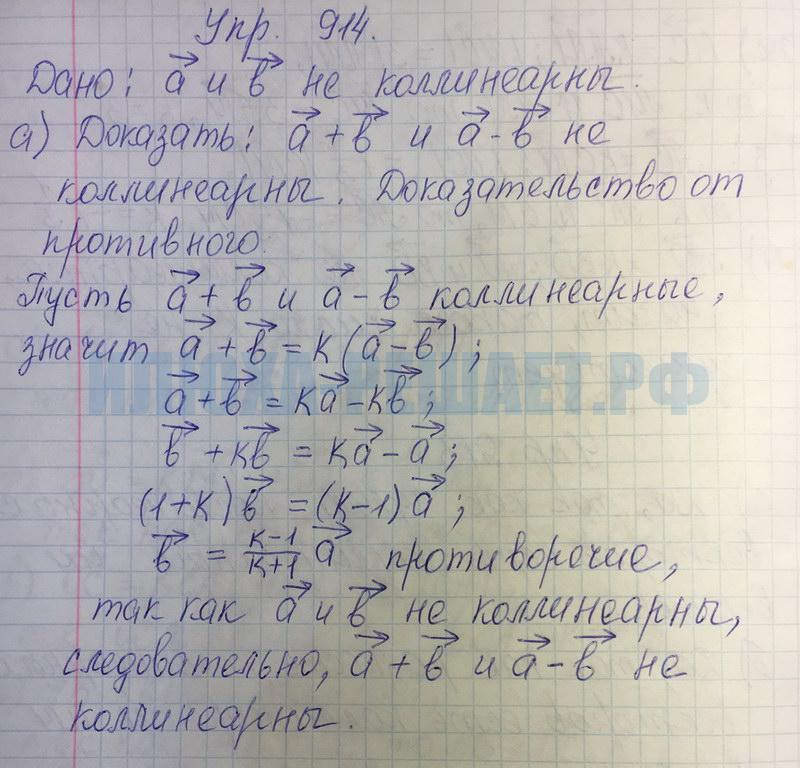 Упр. 914.
Дано: a⃗ и b⃗ не коллинеарны.
а) Доказать: a⃗ + b⃗ и a⃗ - b⃗ не
коллинеарны. Доказательство от
противного.
Пусть a⃗ + b⃗ и a⃗ - b⃗ коллинеарные,
значит a⃗ + b⃗ = к(a⃗ - b⃗);
ИЛЮХА РЕШАЕТ.РФ
a⃗ + b⃗ = кa⃗ - кb⃗;
b⃗ + кb⃗ = кa⃗ - a⃗;
(1+к)b⃗ = (к-1)a⃗;
b⃗ = к-1/к+1 a⃗ противоречие,
так как a⃗ и b⃗ не коллинеарны,
следовательно, a⃗ + b⃗ и a⃗ - b⃗ не
коллинеарны.